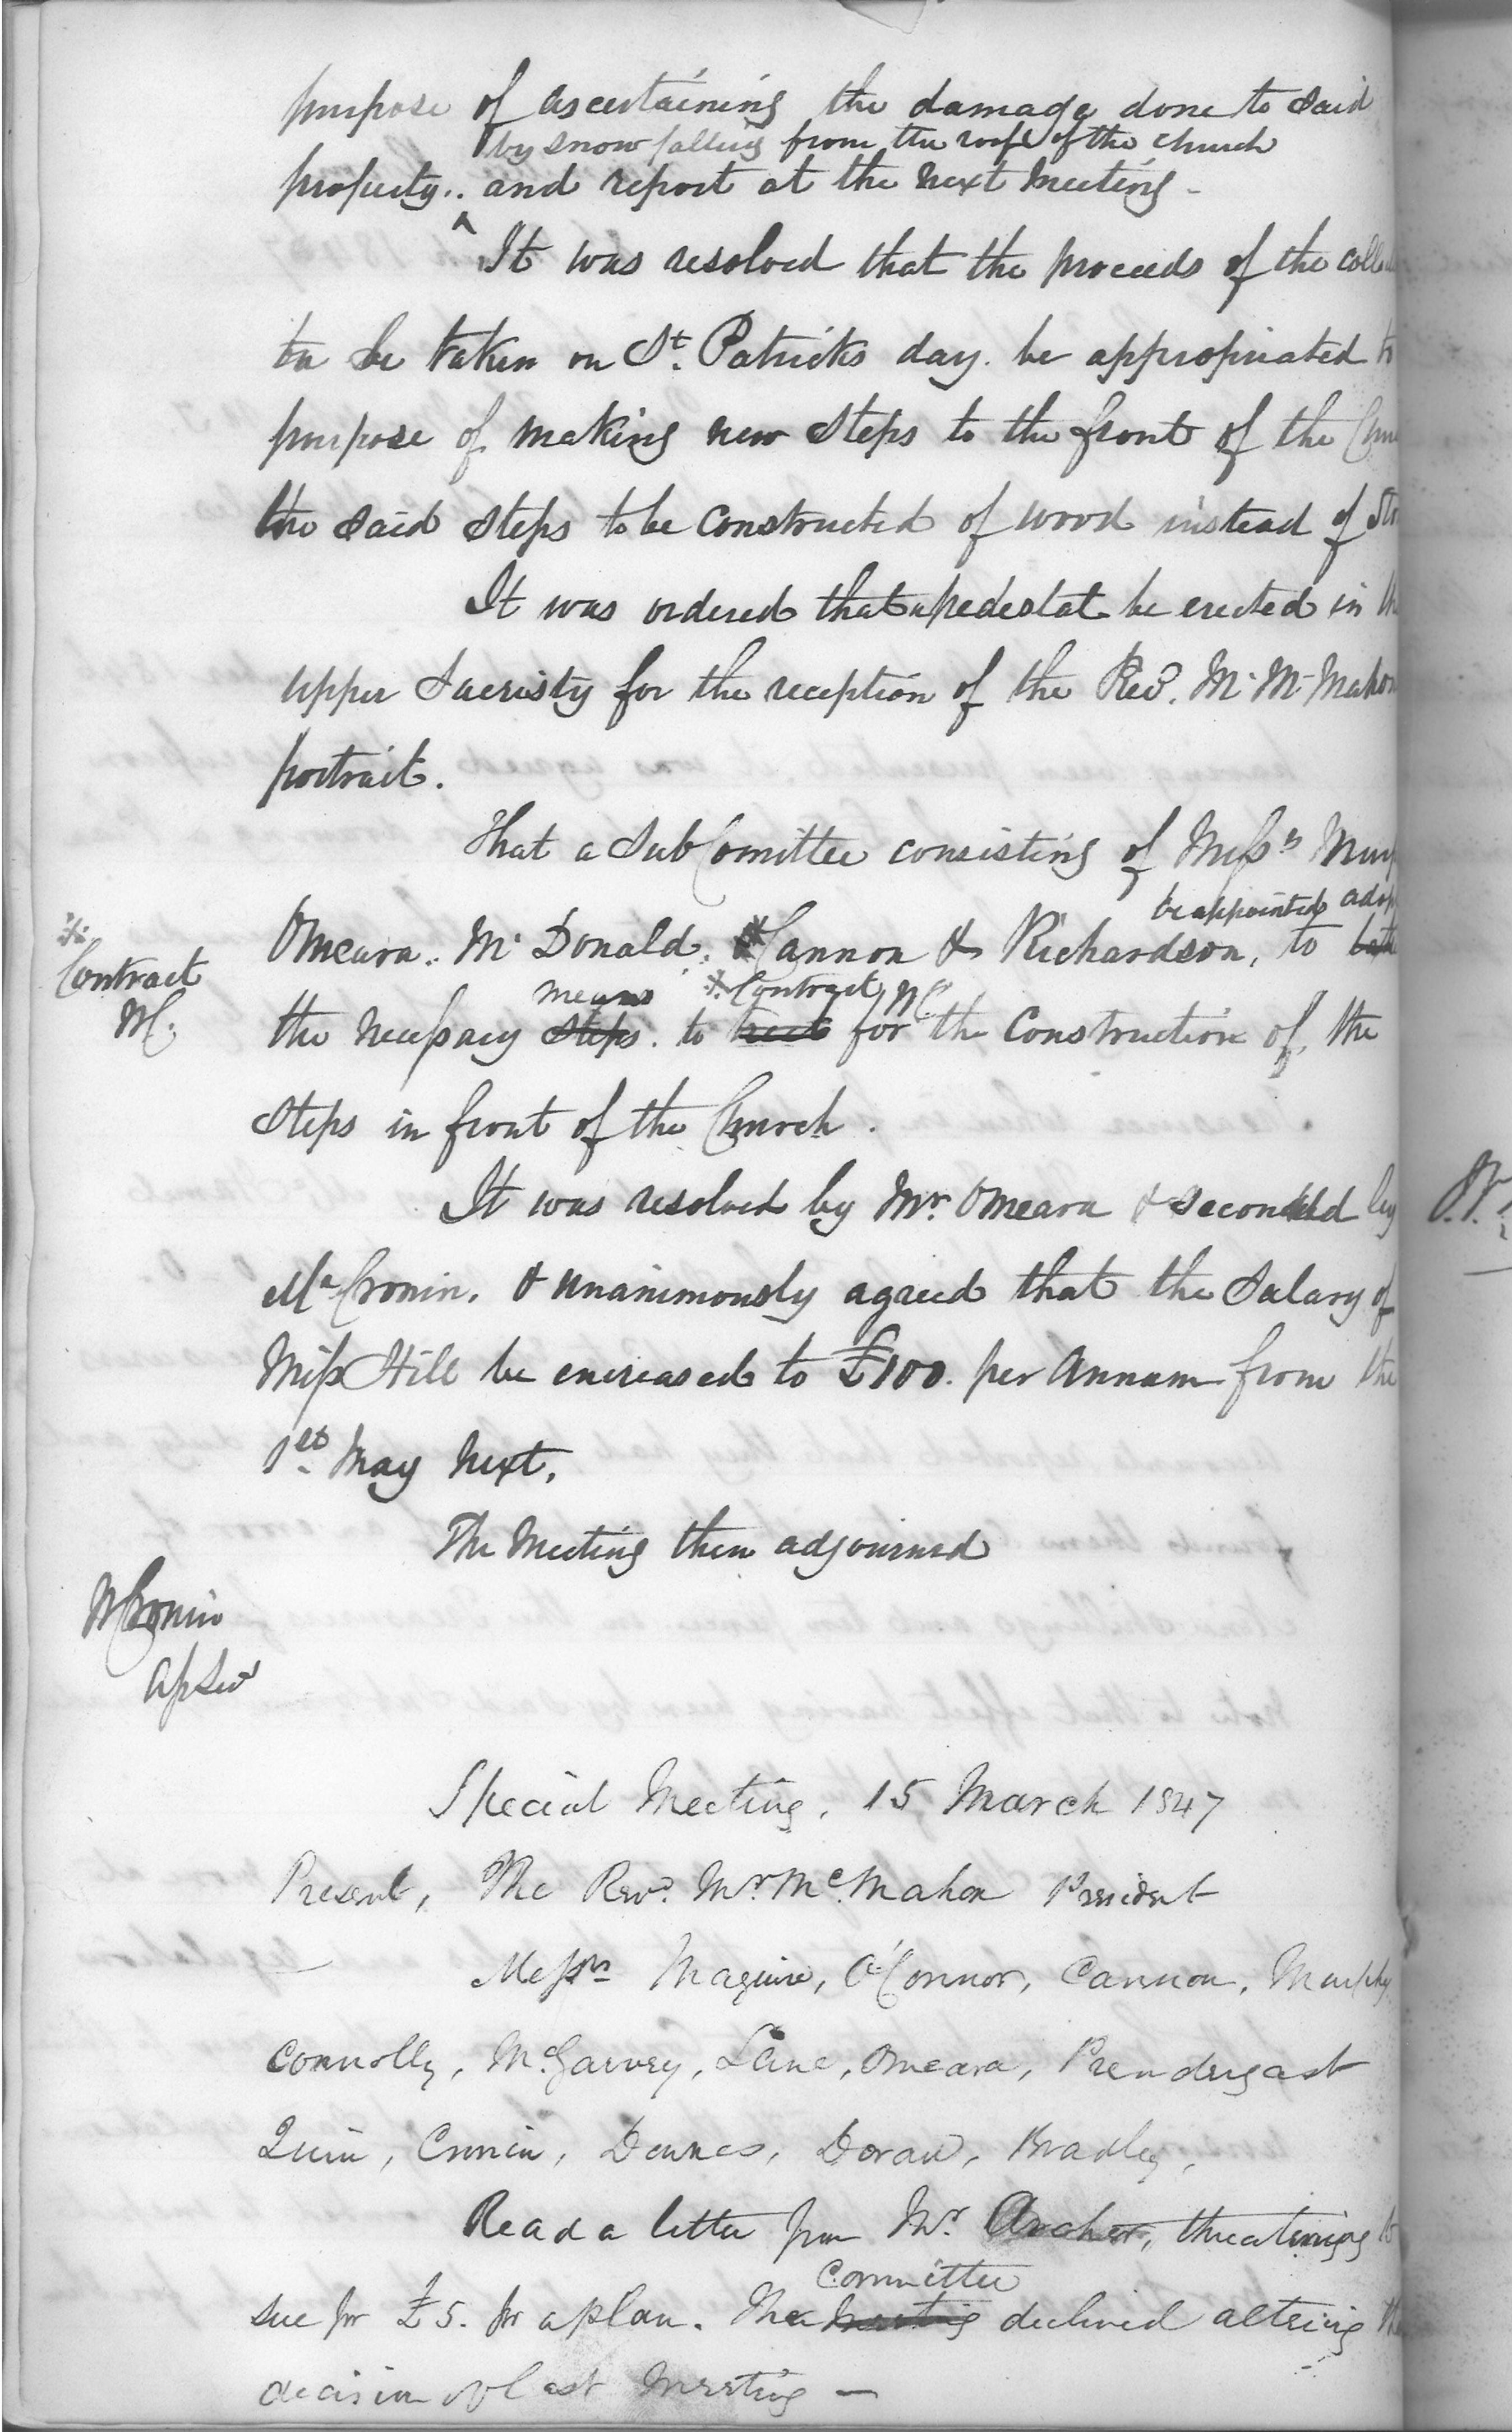 purpose of ascertaining the damage done to said
by snow falling from the roof of the church
property.. and report at the next meeting -
^
It was resolved that the proceeds of the
to be taken on St. Patricks day. be appropriated to
purpose of making new steps to the front of the
the said steps to be constructed of wood instead of
It was ordered that a pedestal be erected in the
upper Sacristy for the reception of the Revd. Mr. Mc Mahon
portrait.
That a Sub Comittee consisting of Messrs
be appointed
※ Contract Mc.
Omeara. Mc Donald. Cannon & Richardson, to
means ※ Contract Mc
the necessary steps. to for the Construction of, the
steps in front of the Church.
It was resolved by Mr. Omeara & seconded by
Mr Cronin, & unanimously agreed that the Salary of
Miss Hill be encreased to £100. per Annum from the
1st May next.
The Meeting then adjourned
M Cronin
Special Meeting, 15 March 1847
Present, The Revd. Mr. Mc.Mahon President
Messrs Maguire, O'Connor, Cannon, Murphy
Connolly, McGarvey, Lane, Omeara, Prendergast
Quin, Cronin, Downes, Doran, Bradley,
Read a letter from Mr. Archer, threatening to
Committee
sue for £5. for a plan. The meeting declined altering the
decision of last Meeting —